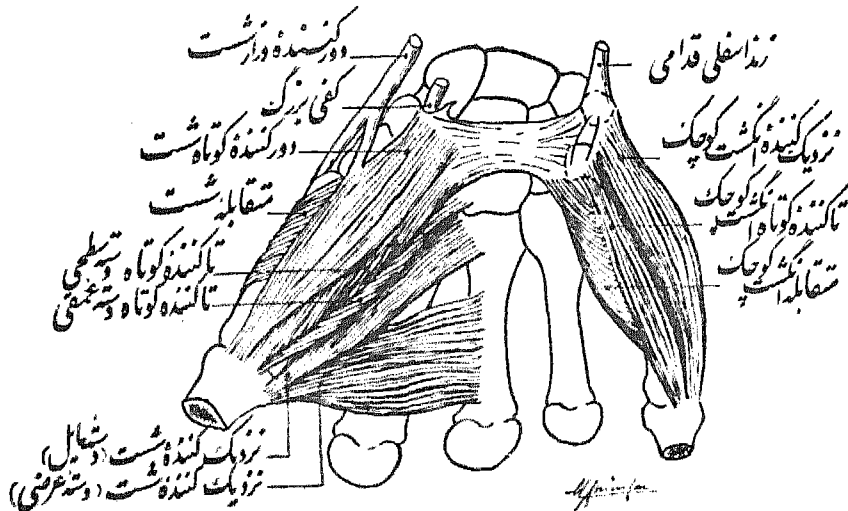 دور کنندهٔ دراز شست
کفی بزرگ
دور کنندهٔ کوتاه شست
متقابلهٔ شست
تا کنندهٔ کوتاه دسته سطحی
تا کنندهٔ کوتاه دسته عمقی
نزدیک کنندهٔ شست (د ستمایل)
نزدیک کنندهٔ شست (دسته عرضی)
زند اسفلی قدامی
نزدیک کنندهٔ انگشت کوچک
تا کنندهٔ کوتاه انگشت کوچک
متقابله انگشت کوچک